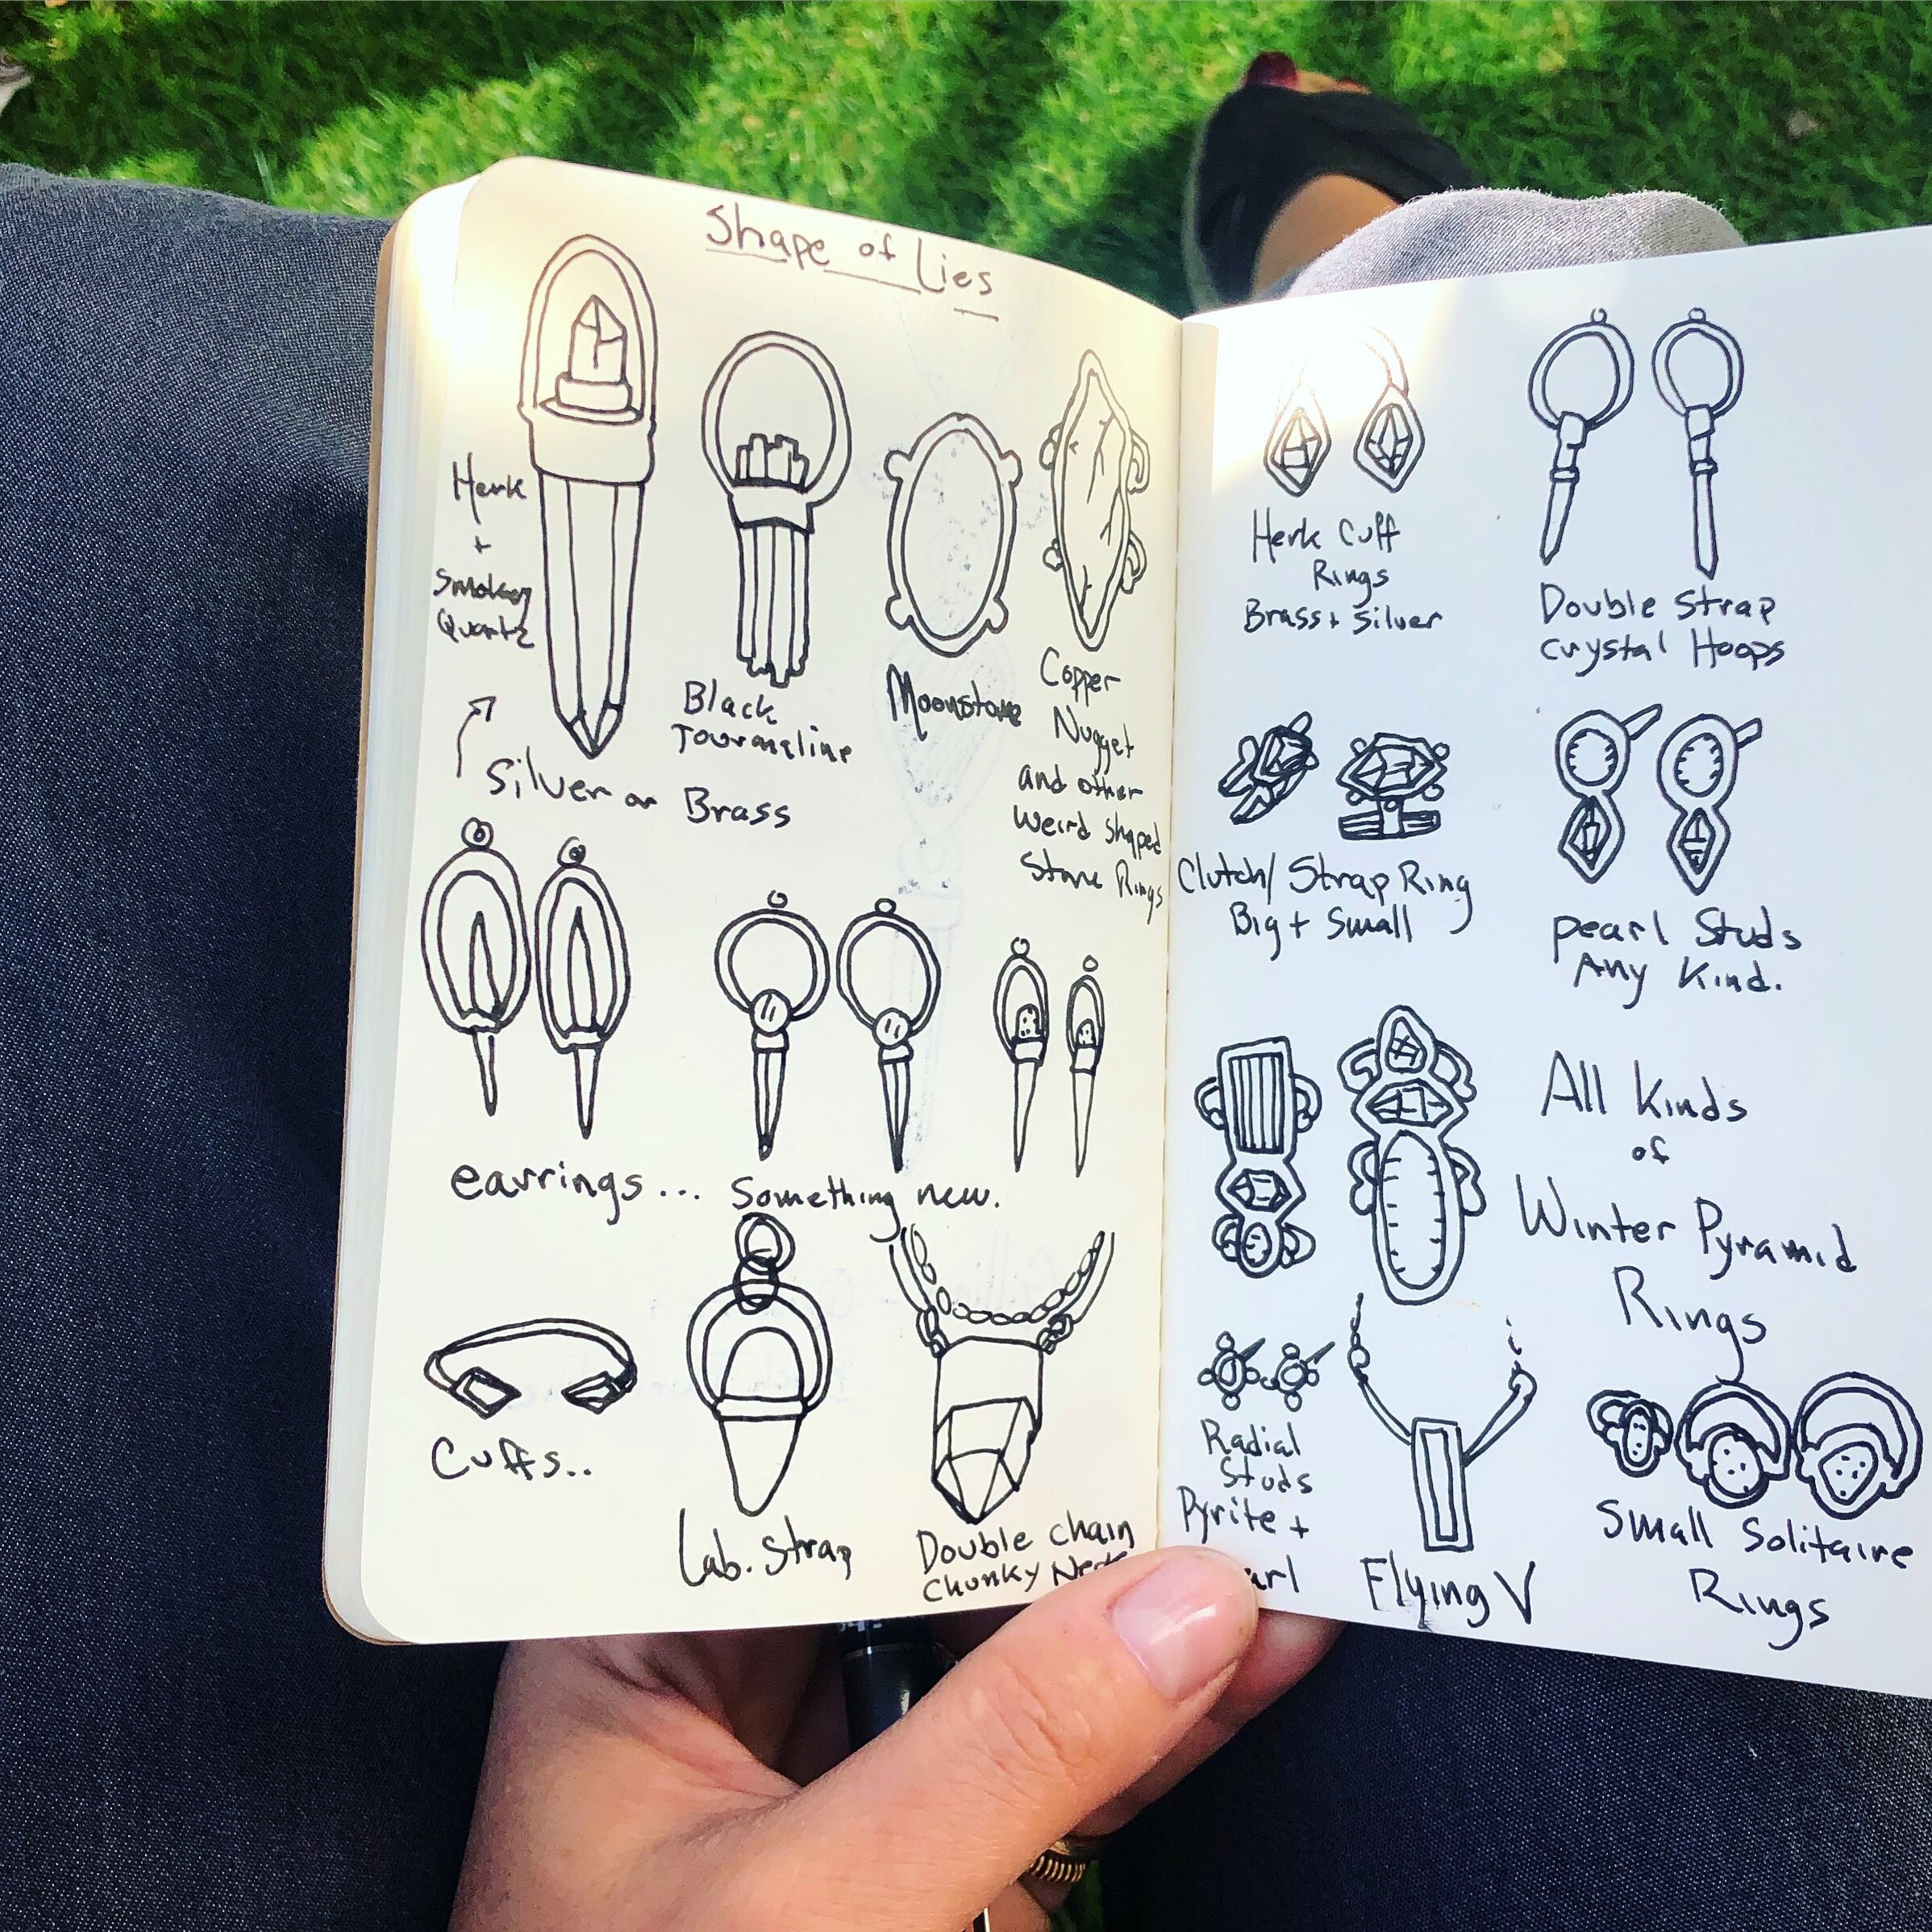 Shape of Lies
Herk
+
Smokey
Quartz
Silver or Brass
Black
Tourmaline
Moonstone
Copper
Nugget
and other
Weird shaped
Stone Rings
earrings... Something new.
Cuffs..
Lab. Strap
Double chain
Chunky
Herk Cuff
Rings
Brass + Silver
Double Strap
Crystal Hoops
Clutch/Strap Ring
Big + Small
pearl Studs
Any Kind.
All Kinds
of
Winter Pyramid
Rings
Radial
Studs
Pyrite +
Flying V
Small Solitaire
Rings